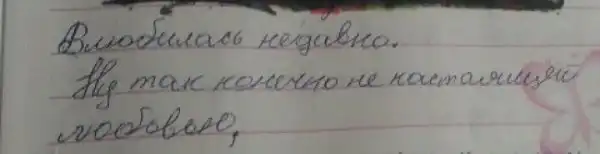 Влюбилась недавно.
Ну так конечно не настаящей
любовью,